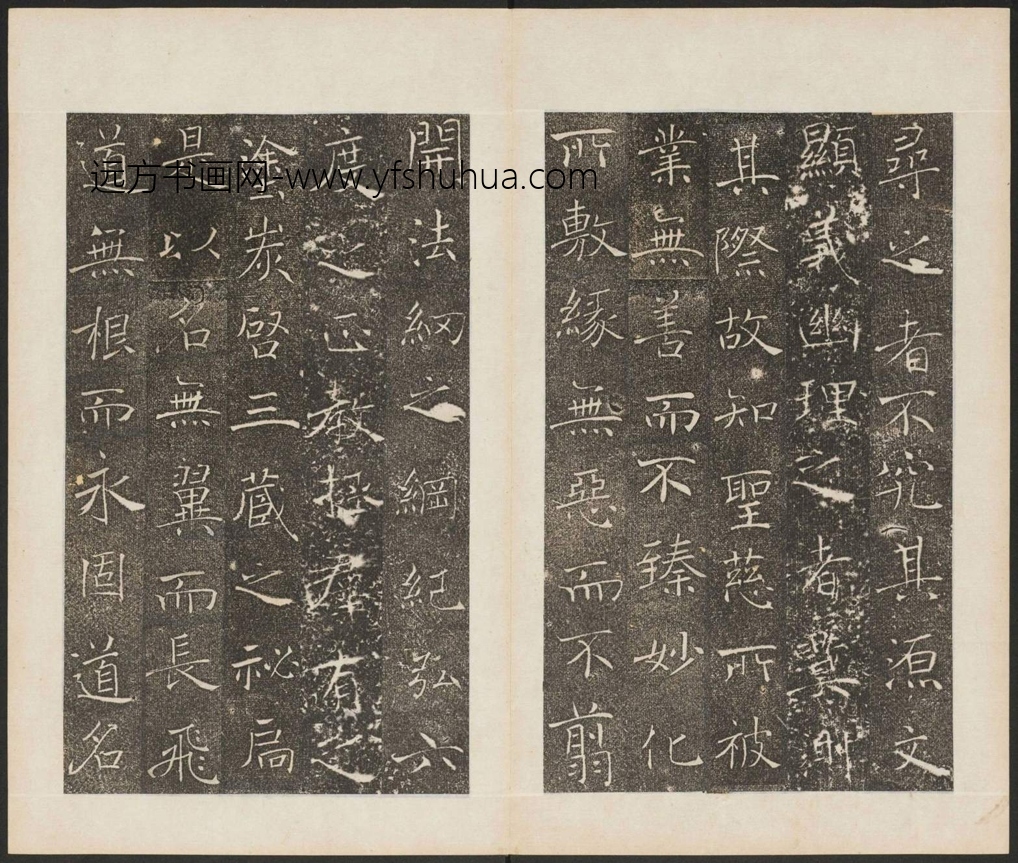 尋之者不究其源文
顯義幽理之者莫測
其際故知聖慈所被
業無善而不臻妙化
所敷緣無惡而不翦
開法網之綱紀弘六
度之正教拯群有之
塗炭啓三藏之祕扃
是以名無翼而長飛
道無根而永固道名
远方书画网-www.yfshuhua.com